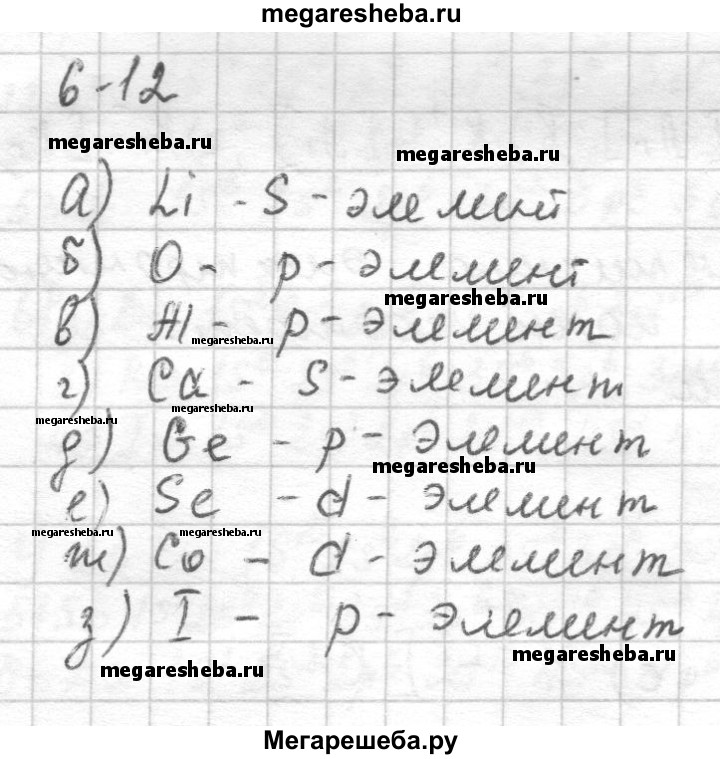 megaresheba.ru
6-12
megaresheba.ru
megaresheba.ru
а) Li - S - элемент
б) O - p - элемент
megaresheba.ru
в) Al - p - элемент
megaresheba.ru
г) Ca - S - элемент
megaresheba.ru
megaresheba.ru
д) Ge - p - элемент
megaresheba.ru
е) Se - d - элемент
megaresheba.ru
megaresheba.ru
ж) Co - d - элемент
з) I - p - элемент
megaresheba.ru
megaresheba.ru
Мегарешеба.ру